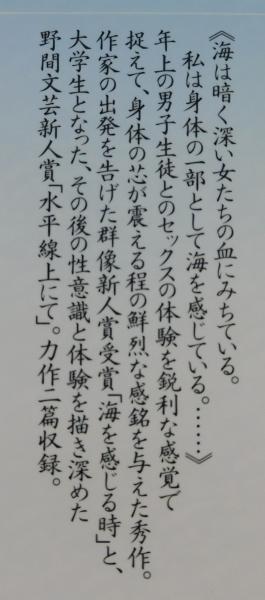 《海は暗く深い女たちの血にみちている。
私は身体の一部として海を感じている。……》
年上の男子生徒とのセックスの体験を鋭利な感覚で
捉えて、身体の芯が震える程の鮮烈な感銘を与えた秀作。
作家の出発を告げた群像新人賞受賞「海を感じる時」と、
大学生となった、その後の性意識と体験を描き深めた
野間文芸新人賞「水平線上にて」。力作二篇収録。